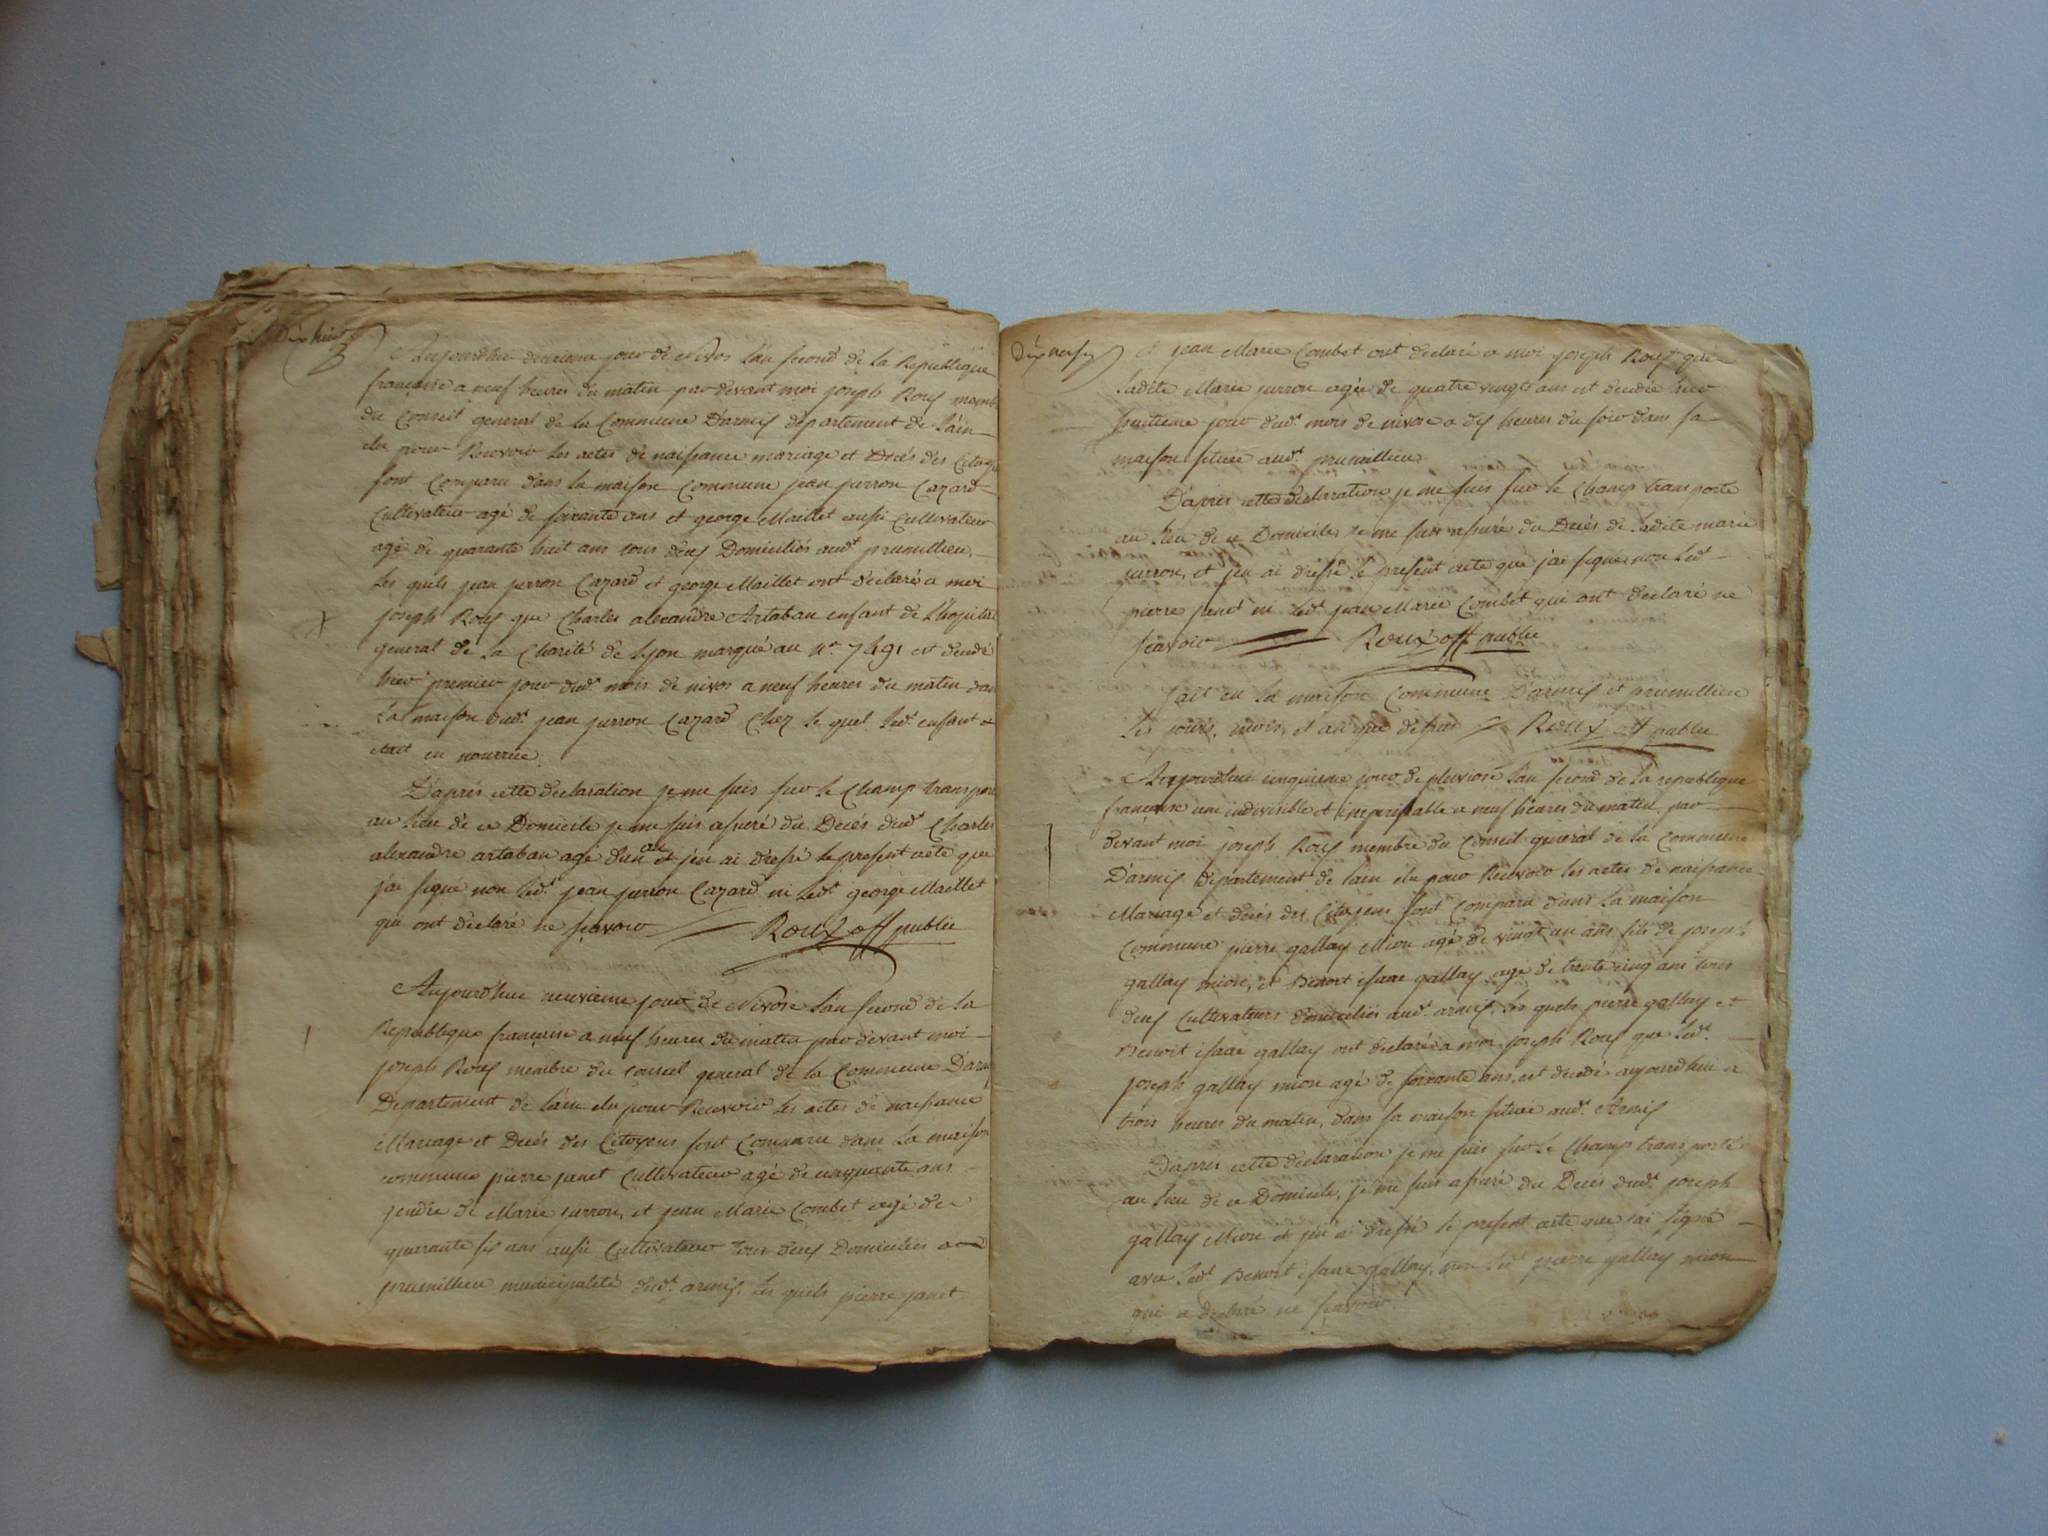 Dix huit
Aujourdhui deuxieme jour de Nivos lan second de la Republique
francaise a neuf heures du matin par devant moi joseph Rouf memb
du Conseil general de la Commune Darmis département de Láin
elu pour Recevoir les actes de naissance mariage et Décés des Citoy
sont Comparu dans la maison Commune jean perron Cazard
Cultivateur agé de soixante ans et george Maillet aussi Cultivateur
agé de quarante huit ans tous deuf Domiciliés audt prunillieu
les quels jean perron Cazard et george Maillet ont déclaré a moi
joseph Rouf que Charles alexandre Artaban enfant de Lhopital
general de La Charité de Lyon marqué au No 7491 est decedé
hier premier jour dudt mois de nivos a neuf heures du matin dan
la maison dudt jean perron Cazard Chez le quel ledt enfant
était en nourrice.
Dáprés cette declaration je me suis sur le Champ transpor
au lieu de ce Domicile je me suis assuré du Decés dudt Charles
alexandre artaban agé dun an et jén ai dréssé le present acte que
jái signé non ledt jean perron Cazard ni ledt george Maillet
qui ont déclaré ne scavoir Rouf off publie
Aujourdhui neuvieme jour de Nivose lan second de la
Republique francaise a neuf heures du matin par devant moi
joseph Rouf membre du Conseil general de la Commune Darm
Département de láin elu pour Recevoir les actes de naissance
Mariage et Decés des Citoyens sont Comparu dans la maison
commune pierre janet Cultivateur agé de cinquante ans
gendre de Marie perron, et jean Marie Combet agé de
quarante six ans aussi Cultivateur tous deuf Domiciliés a
prunillieu municipalité dudt armis. les quels pierre janet
Dix neuf
et jean Marie Combet ont declaré a moi joseph Rouf que
ladite Marie perron agée de quatre vingts ans est decedée hier
huitieme jour dudt mois de nivose a dix heures du soir dans sa
maison située audt prunillieu
Dápres cette declaration je me suis sur le Champ transporté
au lieu de ce Domicile je me suis assuré du Décés de ladite marie
perron, et jén ai dréssé le present acte que jái signé non ledt
pierre janet ni ledt jean Marie Combet qui ont déclaré ne
scavoir Rouf off publie
fait en la maison Commune Darmis et prunillieu
les jours, mois, et an que déssus Rouf off publie
Aujourdhui cinquieme jour de pluviose lan second de la republique
francaise une indivisible et imperissable a neuf heures du matin, par
devant moi joseph Rouf membre du Conseil général de la Commune
Darmis département de lain elu pour Recevoir les actes de naissance
Mariage et decés des Citoyens sont Comparu dans la maison
Commune pierre gallay Mion agé de vingt un ans fils de joseph
gallay mion, et Benoit isaac gallay agé de trente cinq ans tous
deuf Cultivateurs Domiciliés audt armis. les quels pierre gallay et
Benoit isaac gallay ont declaré a moi joseph Rouf que ledt
joseph gallay mion agé de soixante ans, est décédé aujourdhui a
trois heures du matin, dans sa maison située audt Armis
Dápres cette declaration je me suis sur le Champ transporté
au lieu de ce Domicile, je me suis assuré du Decés dudt joseph
gallay Mion et jén ai dréssé le present acte que jái signé
avec ledt Benoit isaac gallay, non ledt pierre gallay mion
qui a declaré ne scavoir.